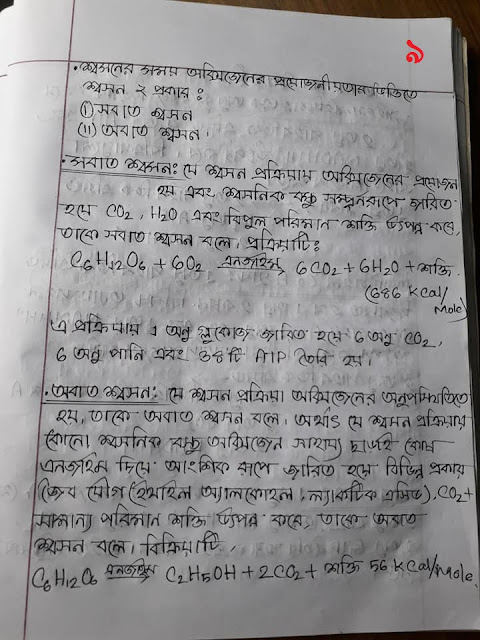 ৯
• শ্বসনের সময় অক্সিজেনের প্রয়োজনীয়তার ভিত্তিতে
শ্বসন ২ প্রকার :
(i) সবাত শ্বসন
(ii) অবাত শ্বসন।
• সবাত শ্বসন: যে শ্বসন প্রক্রিয়ায় অক্সিজেনের প্রয়োজন
হয় এবং শ্বসনিক বস্তু সম্পূর্নরূপে জারিত
হয়ে CO2, H2O এবং বিপুল পরিমান শক্তি উৎপন্ন করে,
তাকে সবাত শ্বসন বলে। প্রক্রিয়াটি:
C6H12O6 + 6O2 এনজাইম 6CO2 + 6H2O + শক্তি
(686 Kcal/
Mole)
এ প্রক্রিয়ায় ১ অনু গ্লুকোজ জারিত হয়ে ৬ অনু CO2,
৬ অনু পানি এবং ৩৪টি ATP তৈরি হয়।
• অবাত শ্বসন: যে শ্বসন প্রক্রিয়া অক্সিজেনের অনুপস্থিতিতে
হয়, তাকে অবাত শ্বসন বলে। অর্থাৎ যে শ্বসন প্রক্রিয়ায়
কোনো শ্বসনিক বস্তু অক্সিজেন সাহায্য ছাড়াই কোষ
এনজাইম দিয়ে আংশিক রূপে জারিত হয়ে বিভিন্ন প্রকার
জৈব যৌগ (ইথাইল অ্যালকোহল, ল্যাকটিক এসিড), CO2 +
সামান্য পরিমান শক্তি উৎপন্ন করে, তাকে অবাত
শ্বসন বলে। বিক্রিয়াটি,
C6H12O6 এনজাইম C2H5OH + 2CO2 + শক্তি 56 Kcal/Mole.